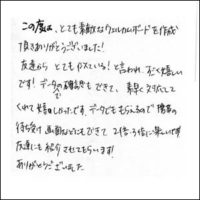 この度は、とても素敵なウェルカムボードを作成
頂きありがとうございました!
友達から とても 似ている! と言われ、すごく嬉しい
です! データの確認も できて、素早く 対応して
くれて嬉しかったです。データでも もらえるので 携帯の
待ち受け画面などにもできて 2倍 3倍に楽しいです
友達にも 紹介させてもらいます!
ありがとうございました